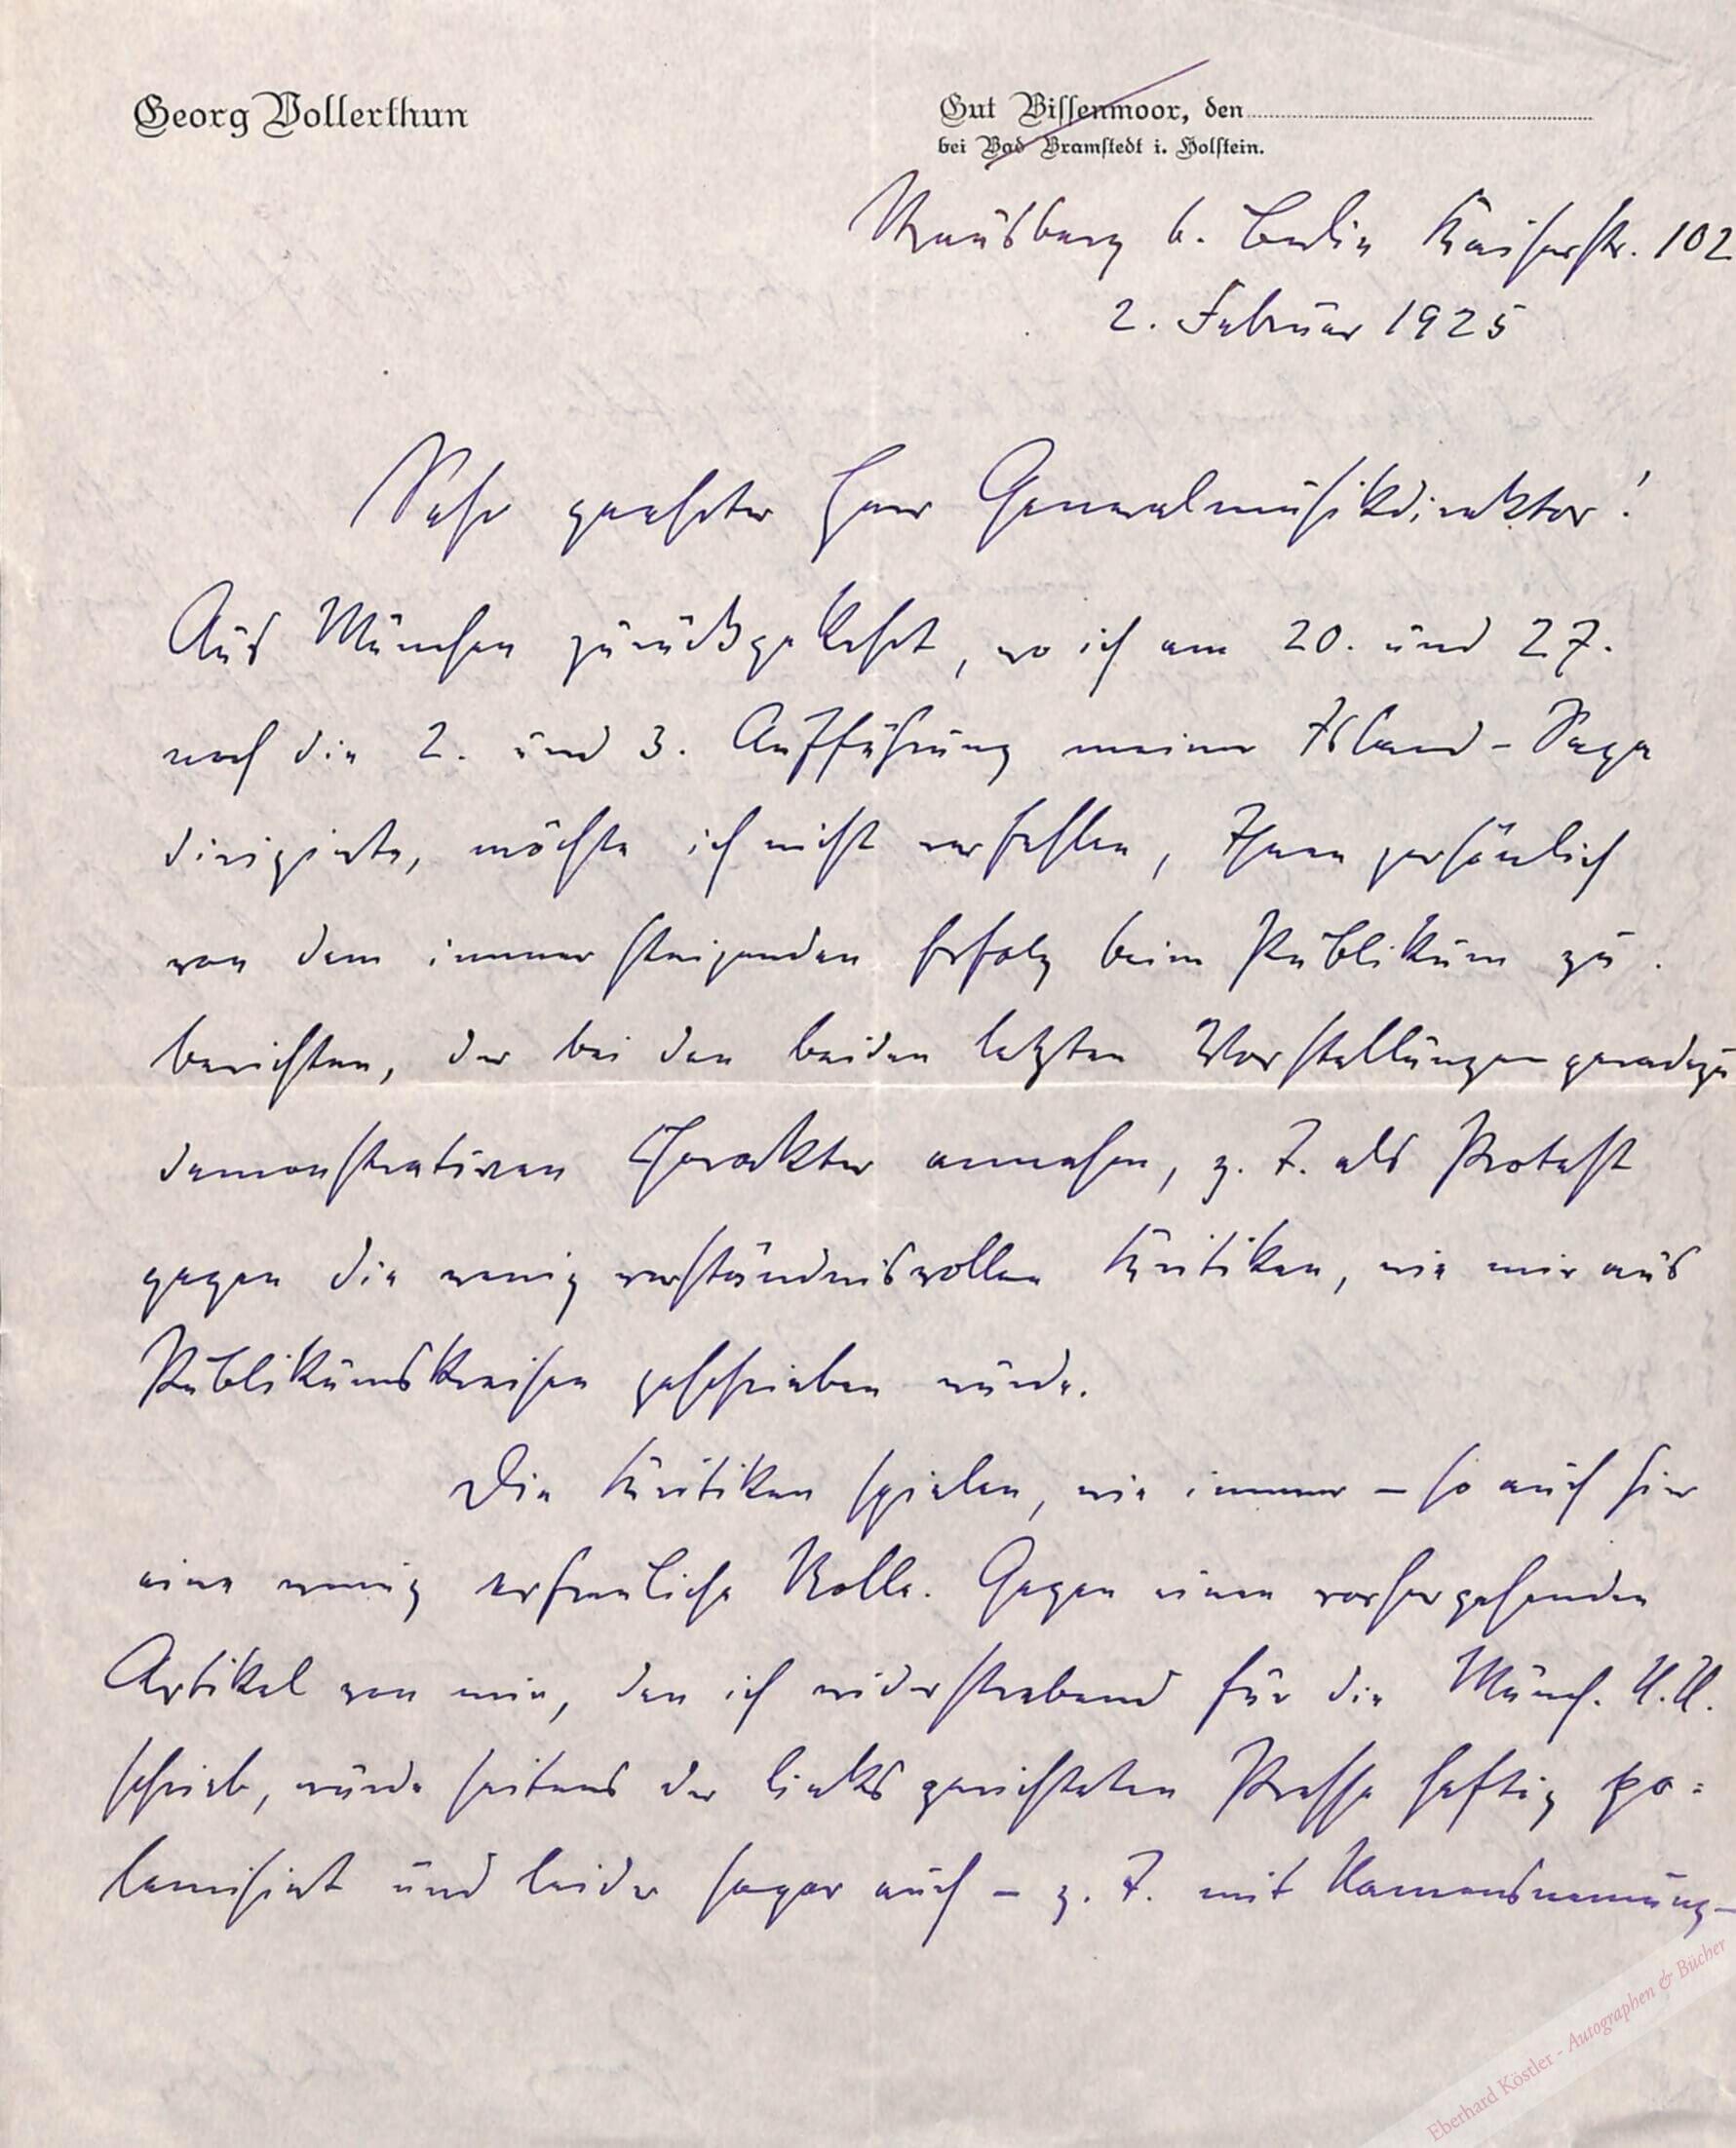 Georg Vollerthun
Gut Bissenmoor, den
bei Bad Bramstedt i. Holstein.
Strausberg b. Berlin Kaiserstr. 102
2. Februar 1925
Sehr geehrter Herr Generalmusikdirektor!
Aus München zurückgekehrt, wo ich am 20. und 27.
noch die 2. und 3. Aufführung meiner Island-Saga
dirigierte, möchte ich nicht verfehlen, Ihnen persönlich
von dem immer steigenden Erfolg beim Publikum zu
berichten, der bei den beiden letzten Vorstellungen geradezu
demonstrativen Charakter annahm, z. T. als Protest
gegen die wenig verständnisvollen Kritiken, wie mir aus
Publikumskreisen geschrieben wurde.
Die Kritiken spielen, wie immer – so auch hier
eine wenig erfreuliche Rolle. Gegen einen vorhergehenden
Artikel von mir, den ich widerstrebend für die Münch. N.N.
schrieb, wurde seitens der links gerichteten Presse heftig po=
lemisiert und leider sogar auch – z. T. mit Namensnennung –
Eberhard Köstler - Autographen & Bücher